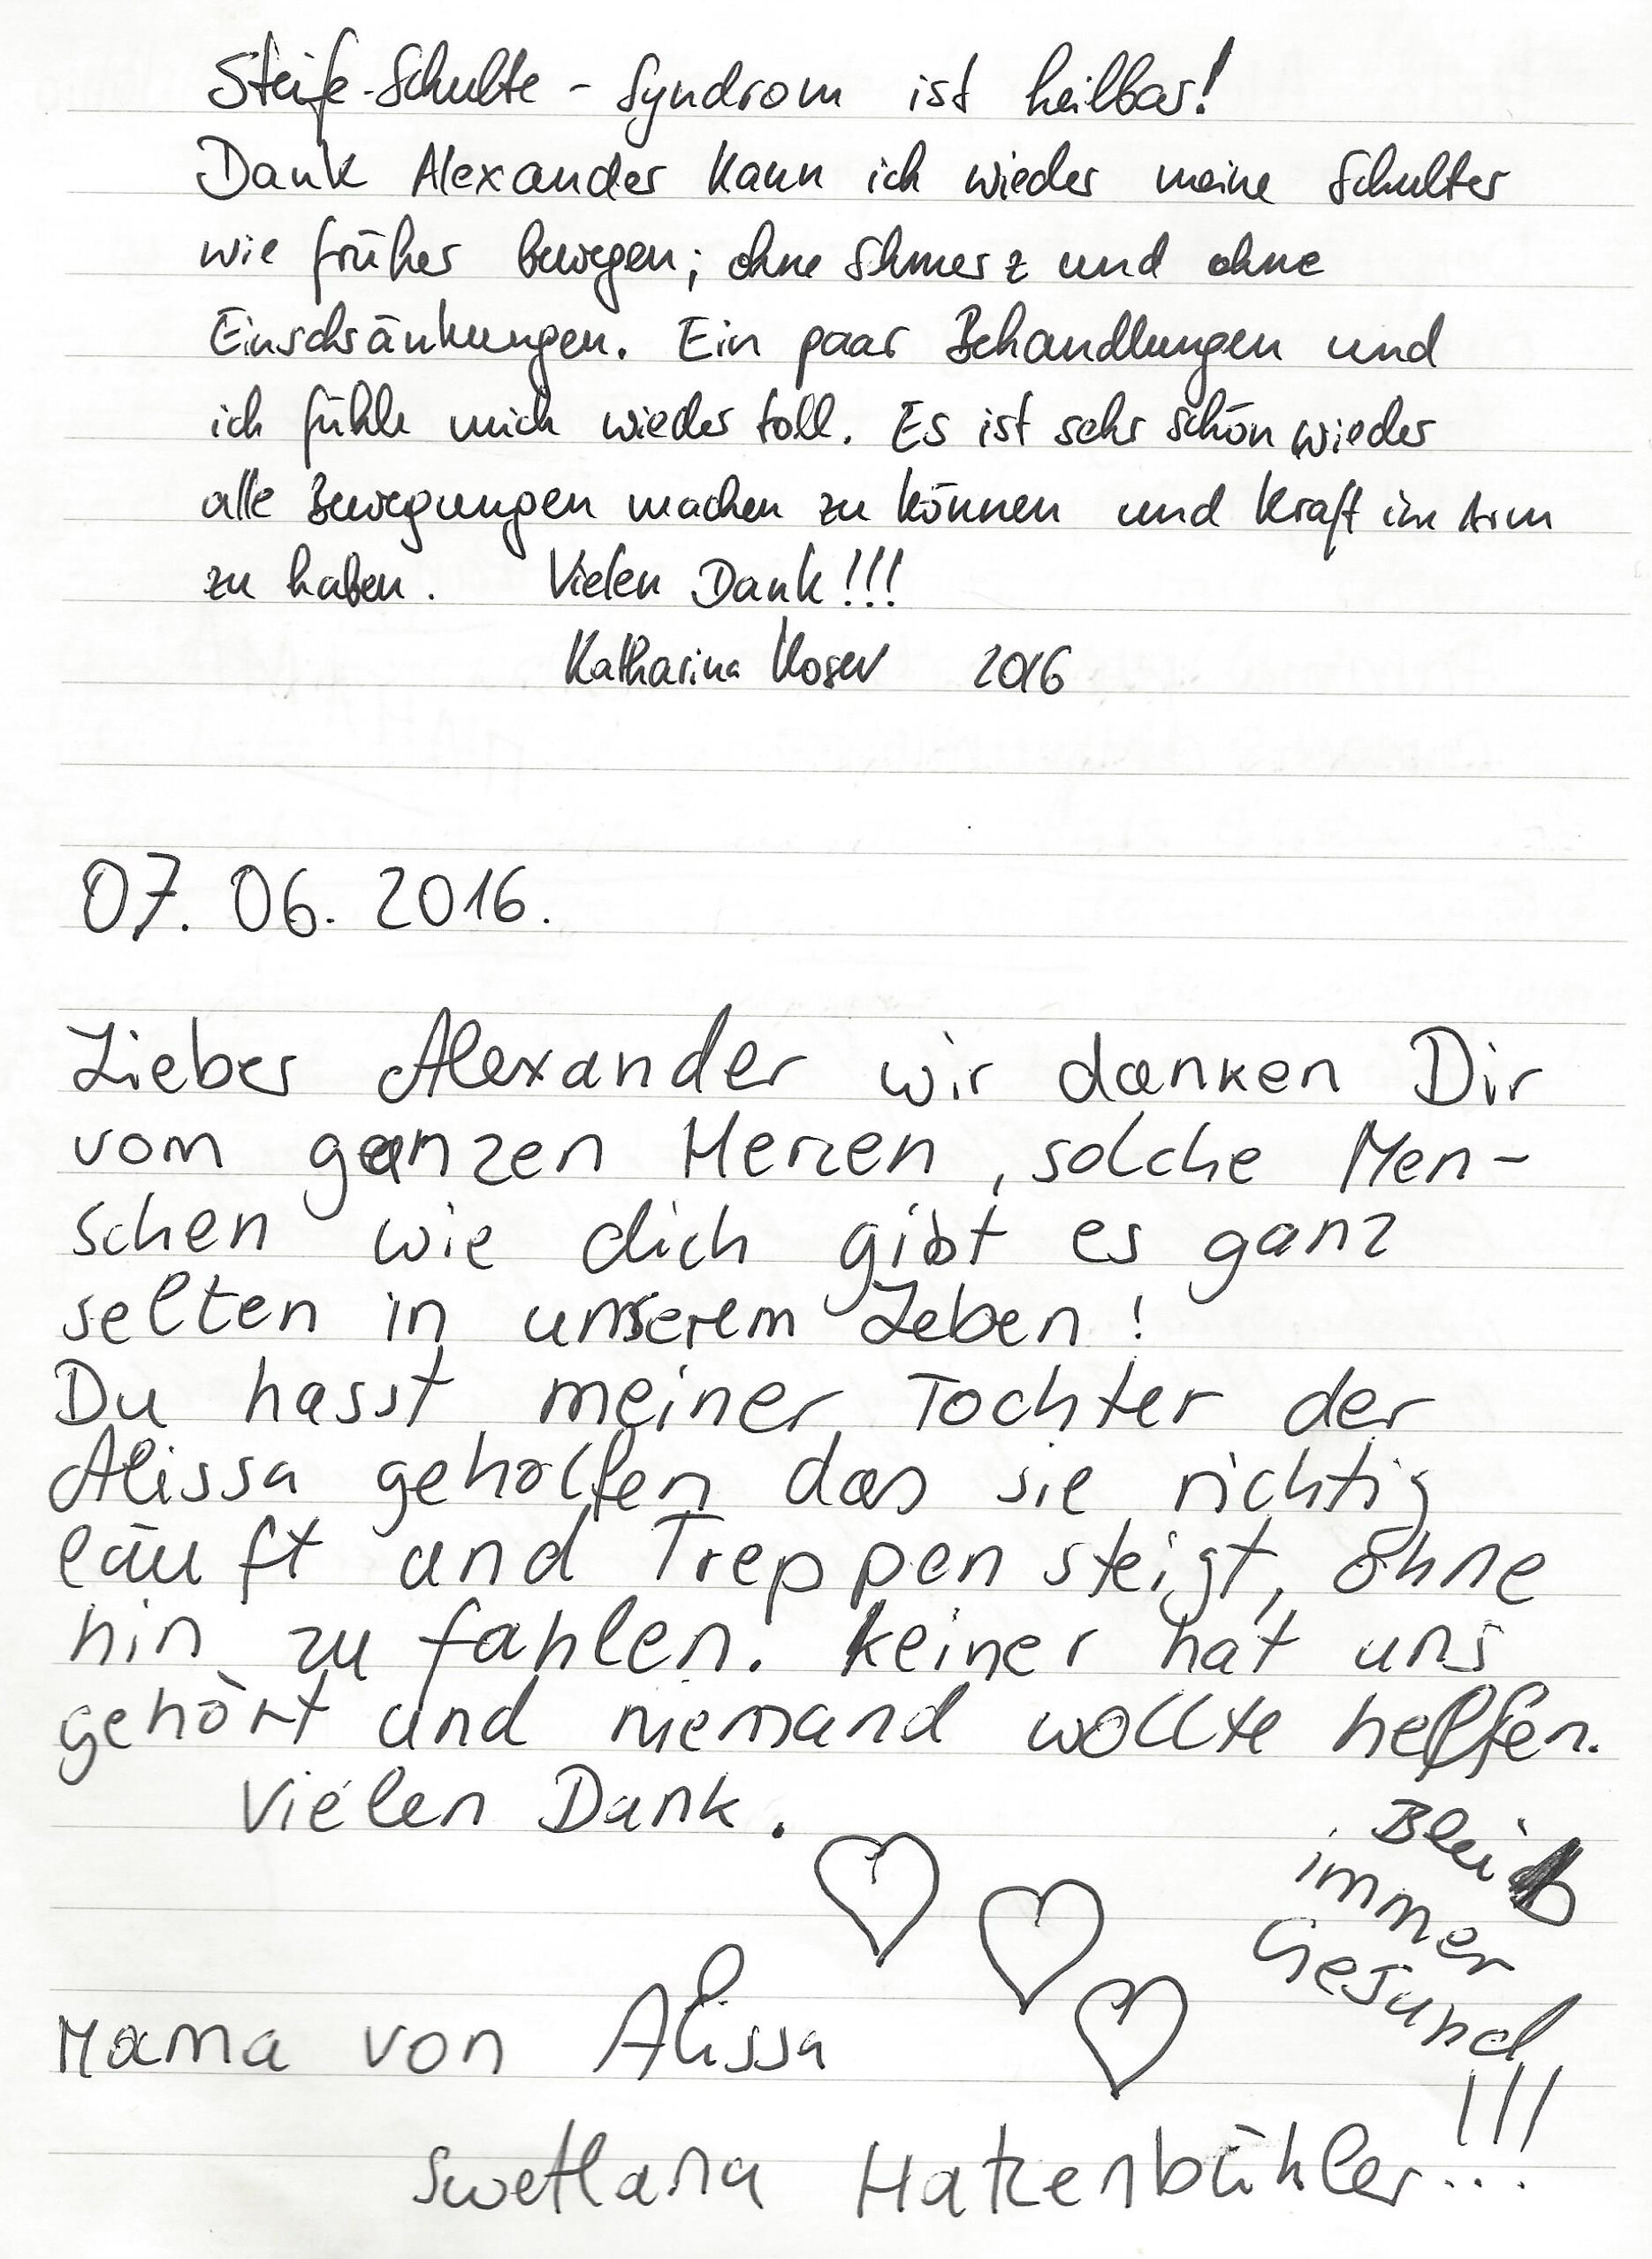 Steife-Schulte-Syndrom ist heilbar!
Dank Alexander kann ich wieder meine Schulter
wie früher bewegen; ohne Shmerz und ohne
Einschränkungen. Ein paar Behandlungen und
ich fühle mich wieder toll. Es ist sehr schön wieder
alle Bewegungen machen zu können und Kraft im Arm
zu haben. Vielen Dank!!!
Katharina 2016
07. 06. 2016.
Lieber Alexander wir danken Dir
vom ganzen Herzen, solche Men-
schen wie dich gibt es ganz
selten in unserem Leben!
Du hasst meiner Tochter der
Alissa geholfen das sie richtig
läuft und Treppen steigt, ohne
hin zu fahlen. keiner hat uns
gehört und niemand wollte helfen.
Vielen Dank.
Bleib
immer
Gesund
!!!
Mama von Alissa
Swetlana Hatzenbühler...